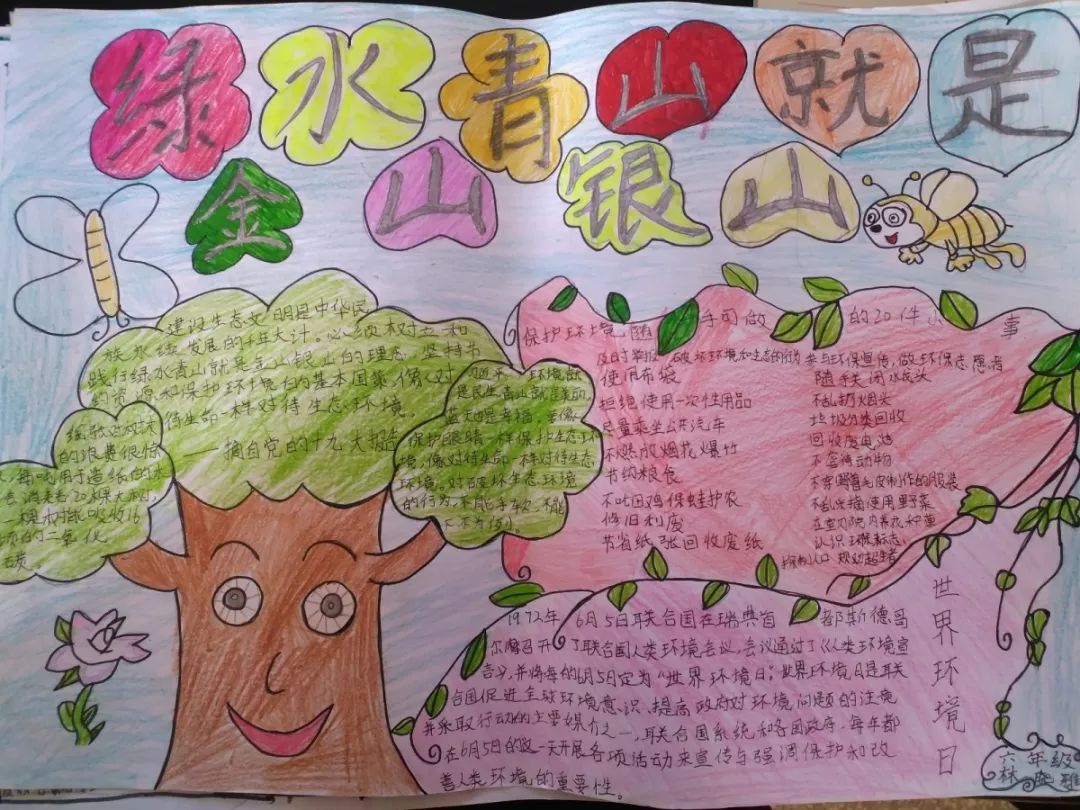 绿水青山就是
金山银山
建设生态文明是中华民
族永续发展的千年大计。必须树立和
践行绿水青山就是金山银山的理念，坚持节
约资源和保护环境的基本国策，像对
待生命一样对待生态环境。
——摘自党的十九大报告
环境就
是民生，青山就是美丽，
蓝天也是幸福，要像
保护眼睛一样保护生态环
境，像对待生命一样对待生态
环境。对破坏生态环境
的行为，不能手软，不能
下不为例。
纸张对树木
的浪费很惊
人，每吨用于造纸的木
20棵大树，
一棵树能吸收16
的二氧化
碳。
保护环境，随手可做的20件小事
及时举报破坏环境和生态的行为
使用布袋
拒绝使用一次性用品
尽量乘坐公共汽车
不燃放烟花爆竹
节约粮食
不吃田鸡保蛙护农
修旧利废
节省纸张回收废纸
参与环保宣传，做环保志愿者
随手关闭水龙头
不乱扔烟头
垃圾分类回收
回收废电池
不虐待动物
不穿野兽毛皮制作的服装
不乱采摘使用野菜
认识环保标志
控制人口 规劝超生者
世界环境日
1972年6月5日联合国在瑞典首都斯德哥
尔摩召开了联合国人类环境会议，会议通过了《人类环境宣
言》，并将每年的6月5日定为“世界环境日”；世界环境日是联
合国促进全球环境意识、提高政府对环境问题的注意
并采取行动的主要媒介之一，联合国系统和各国政府，每年都
在6月5日的这一天开展各项活动来宣传与强调保护和改
善人类环境的重要性。
六年级
林